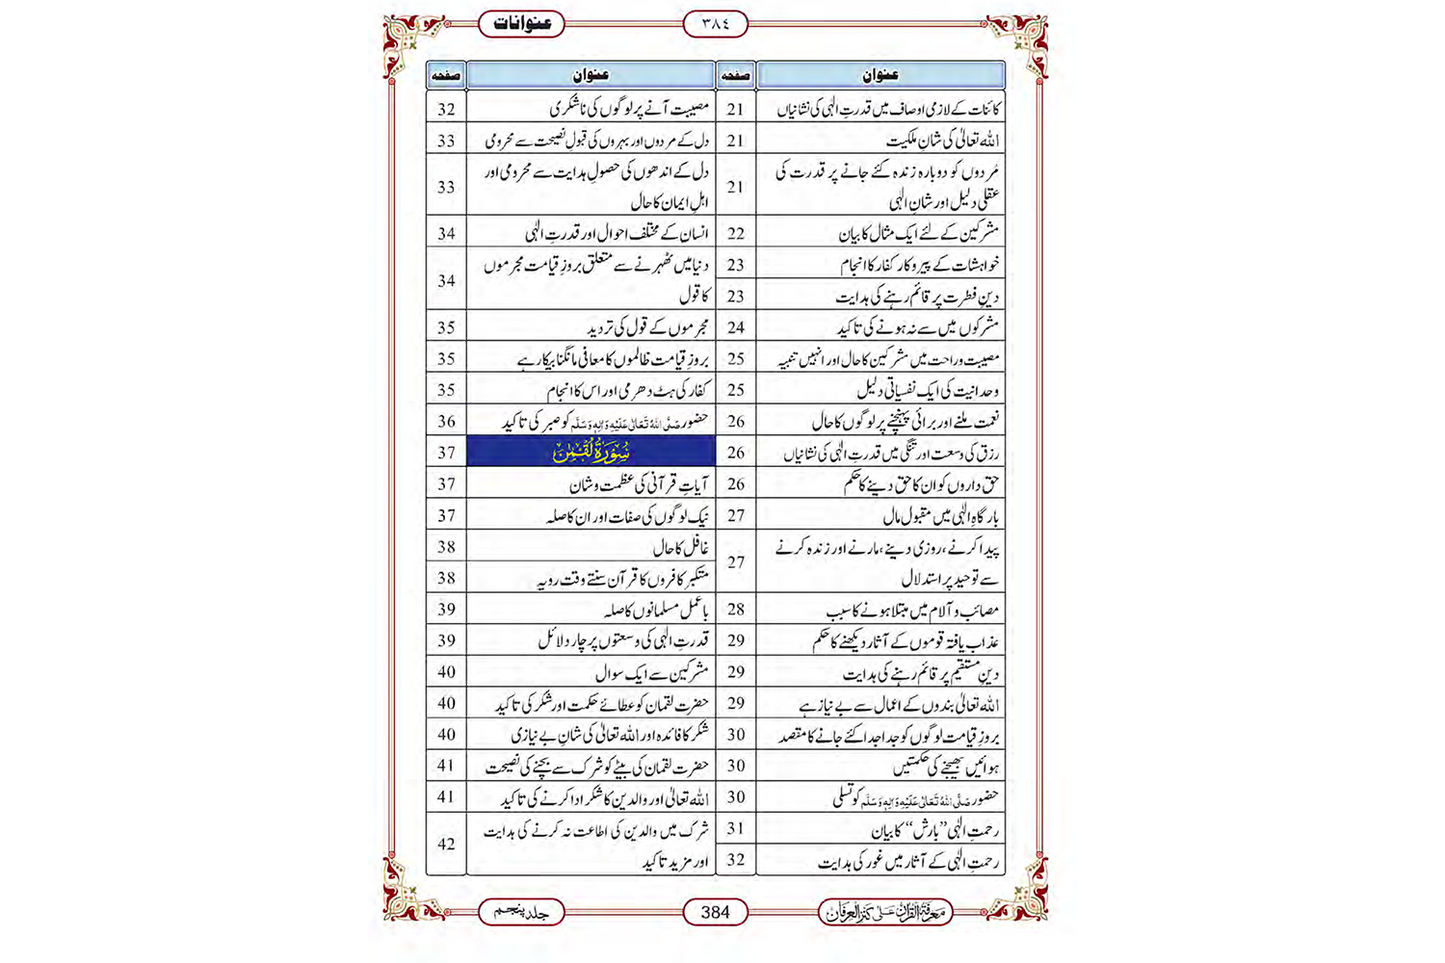 عنوانات
٣٨٤
عنوان صفحہ
کائنات کے لازمی اوصاف میں قدرتِ الٰہی کی نشانیاں 21
اللہ تعالیٰ کی شانِ ملکیت 21
مُردوں کو دوبارہ زندہ کئے جانے پر قدرت کی
عقلی دلیل اور شانِ الٰہی 21
مشرکین کے لئے ایک مثال کا بیان 22
خواہشات کے پیروکار کفار کا انجام 23
دینِ فطرت پر قائم رہنے کی ہدایت 23
مشرکوں میں سے نہ ہونے کی تاکید 24
مصیبت و راحت میں مشرکین کا حال اور انہیں تنبیہ 25
وحدانیت کی ایک نفسیاتی دلیل 25
نعمت ملنے اور برائی پہنچنے پر لوگوں کا حال 26
رزق کی وسعت اور تنگی میں قدرتِ الٰہی کی نشانیاں 26
حق داروں کو ان کا حق دینے کا حکم 26
بارگاہِ الٰہی میں مقبول مال 27
پیدا کرنے، روزی دینے، مارنے اور زندہ کرنے
سے توحید پر استدلال 27
مصائب و آلام میں مبتلا ہونے کا سبب 28
عذاب یافتہ قوموں کے آثار دیکھنے کا حکم 29
دینِ مستقیم پر قائم رہنے کی ہدایت 29
اللہ تعالیٰ بندوں کے اعمال سے بے نیاز ہے 29
بروزِ قیامت لوگوں کو جدا جدا کئے جانے کا مقصد 30
ہوائیں بھیجنے کی حکمتیں 30
حضور صَلَّی اللہُ تَعَالٰی عَلَیْہِ وَاٰلِہٖ وَسَلَّم کو تسلی 30
رحمتِ الٰہی ’’بارش‘‘ کا بیان 31
رحمتِ الٰہی کے آثار میں غور کی ہدایت 32
عنوان صفحہ
مصیبت آنے پر لوگوں کی ناشکری 32
دل کے مردوں اور بہروں کی قبولِ نصیحت سے محرومی 33
دل کے اندھوں کی حصولِ ہدایت سے محرومی اور
اہلِ ایمان کا حال 33
انسان کے مختلف احوال اور قدرتِ الٰہی 34
دنیا میں ٹھہرنے سے متعلق بروزِ قیامت مجرموں
کا قول 34
مجرموں کے قول کی تردید 35
بروزِ قیامت ظالموں کا معافی مانگنا بیکار ہے 35
کفار کی ہٹ دھرمی اور اس کا انجام 35
حضور صَلَّی اللہُ تَعَالٰی عَلَیْہِ وَاٰلِہٖ وَسَلَّم کو صبر کی تاکید 36
سُوْرَۃُ لُقْمٰن 37
آیاتِ قرآنی کی عظمت و شان 37
نیک لوگوں کی صفات اور ان کا صلہ 37
غافل کا حال 38
متکبر کافروں کا قرآن سنتے وقت رویہ 38
باعمل مسلمانوں کا صلہ 39
قدرتِ الٰہی کی وسعتوں پر چار دلائل 39
مشرکین سے ایک سوال 40
حضرت لقمان کو عطائے حکمت اور شکر کی تاکید 40
شکر کا فائدہ اور اللہ تعالیٰ کی شانِ بے نیازی 40
حضرت لقمان کی بیٹے کو شرک سے بچنے کی نصیحت 41
اللہ تعالیٰ اور والدین کا شکر ادا کرنے کی تاکید 41
شرک میں والدین کی اطاعت نہ کرنے کی ہدایت
اور مزید تاکید 42
معرفۃ القرآن علیٰ کنز العرفان
384
جلد پنجم